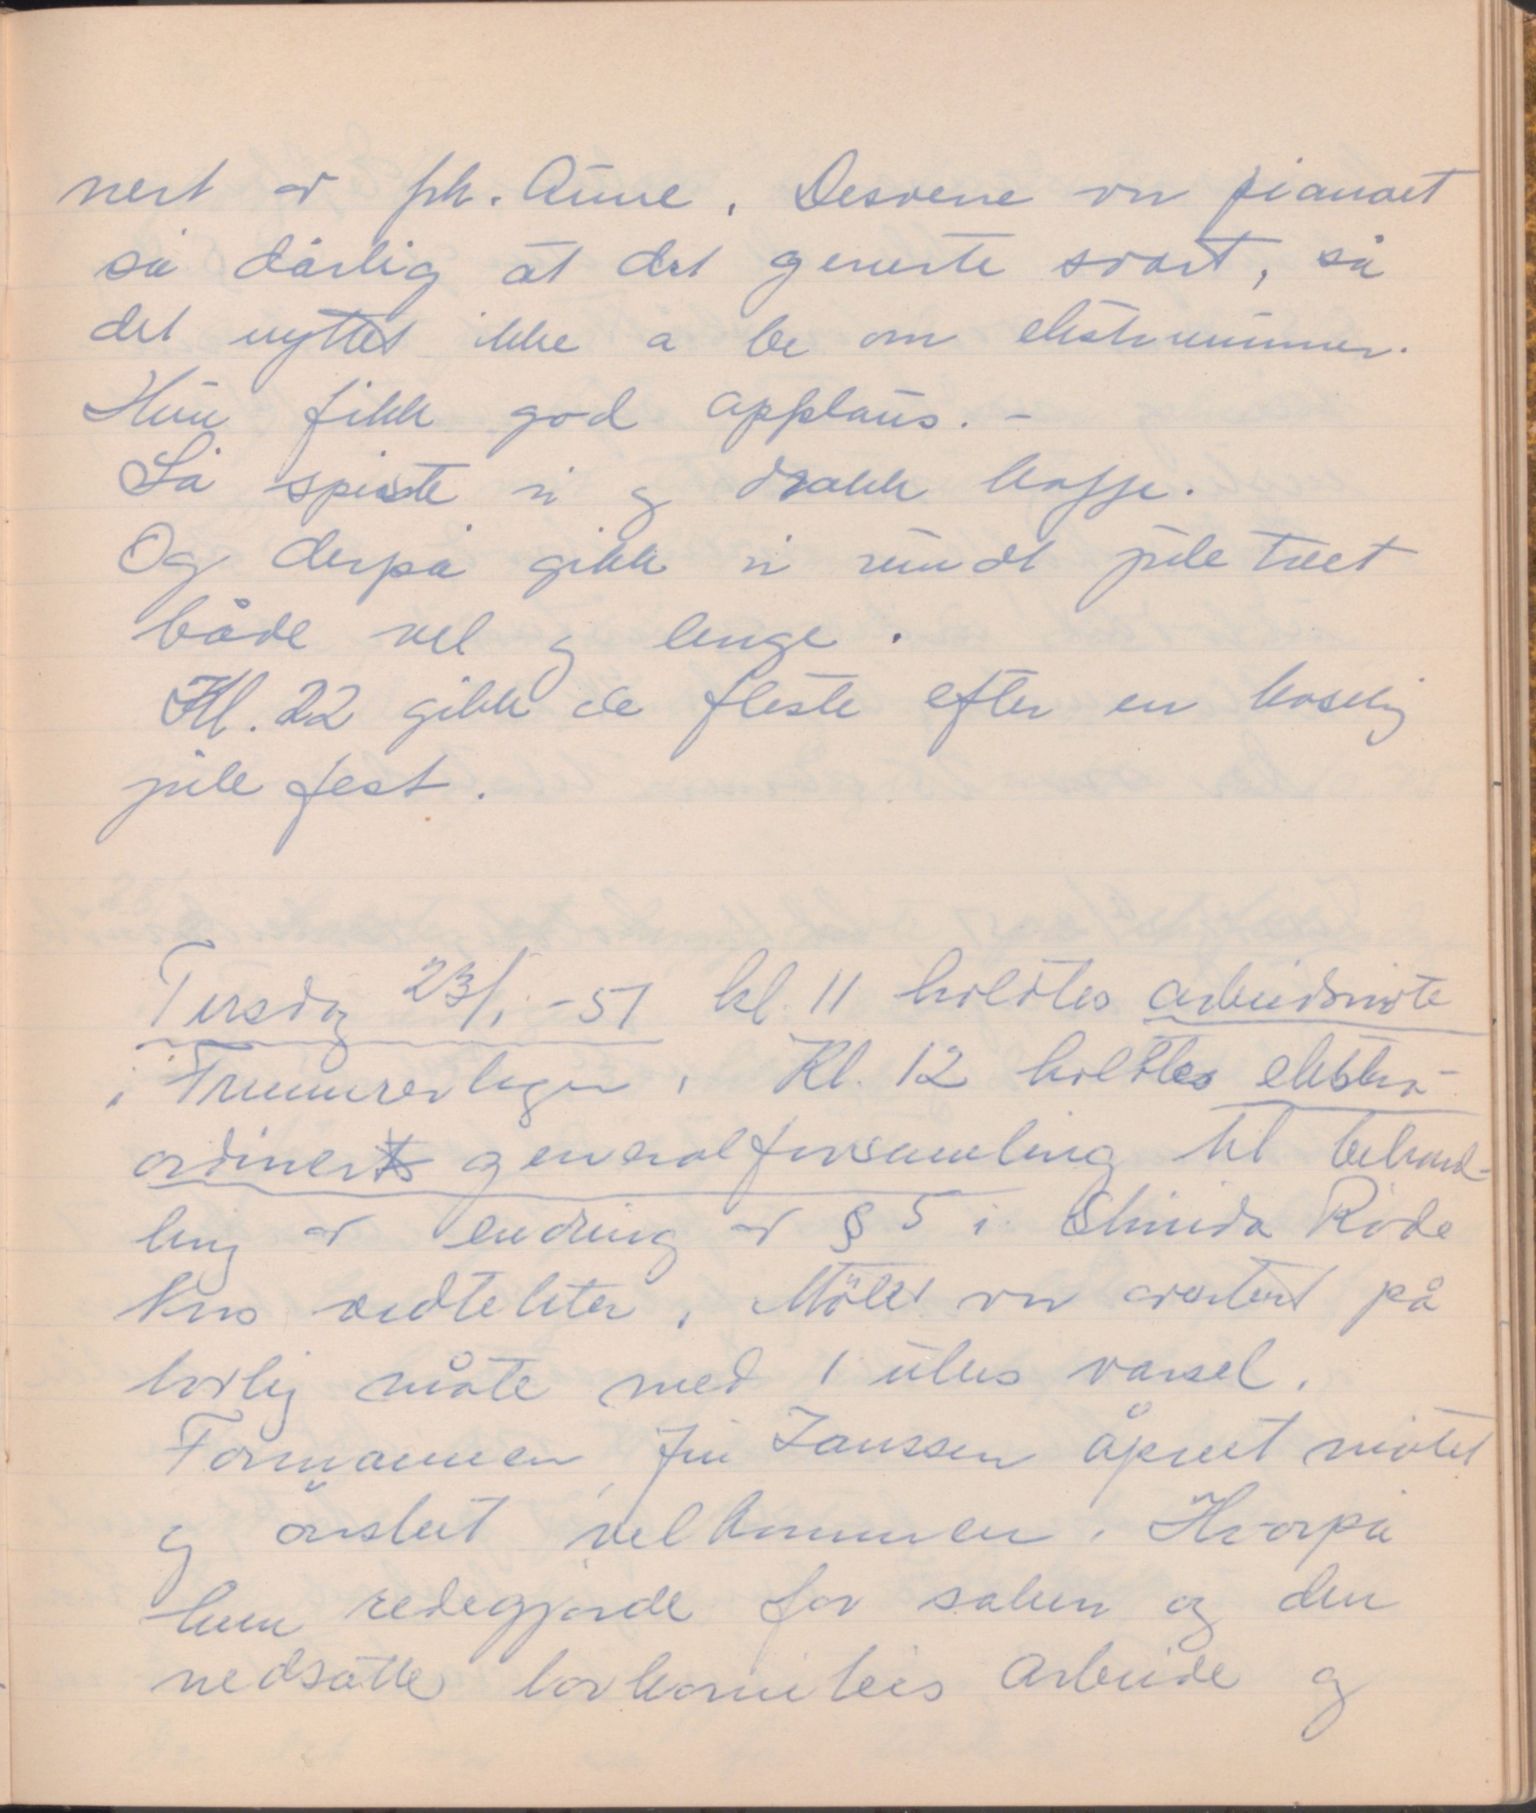 nert av frk. Aune. Desverre var pianoet
så dårlig at det generte svært, så
det nyttet ikke a be om ekstranummer.
Hun fikk god applaus. -
Så spiste vi og drakk kaffe.
Og derpå gikk vi rundt juletreet
både vel og lenge.
Kl. 22 gikk de fleste efter en koselig
julefest.
Tirsdag 23/1 -51 kl. 11 holdtes arbeidsmøte
i Frimurerlogen. Kl. 12 holdtes ekstra-
ordinert generalforsamling til behand-
ling av endring av § 5 i Elvida Røde
Kors vedtekter. Møtet var avertert på
lovlig måte med 1 ukes varsel.
Formannen, fru Janssen åpnet møtet
og ønsket velkommen. Hvorpå
hun redegjorde for saken og den
nedsatte lovkomiteis arbeide og